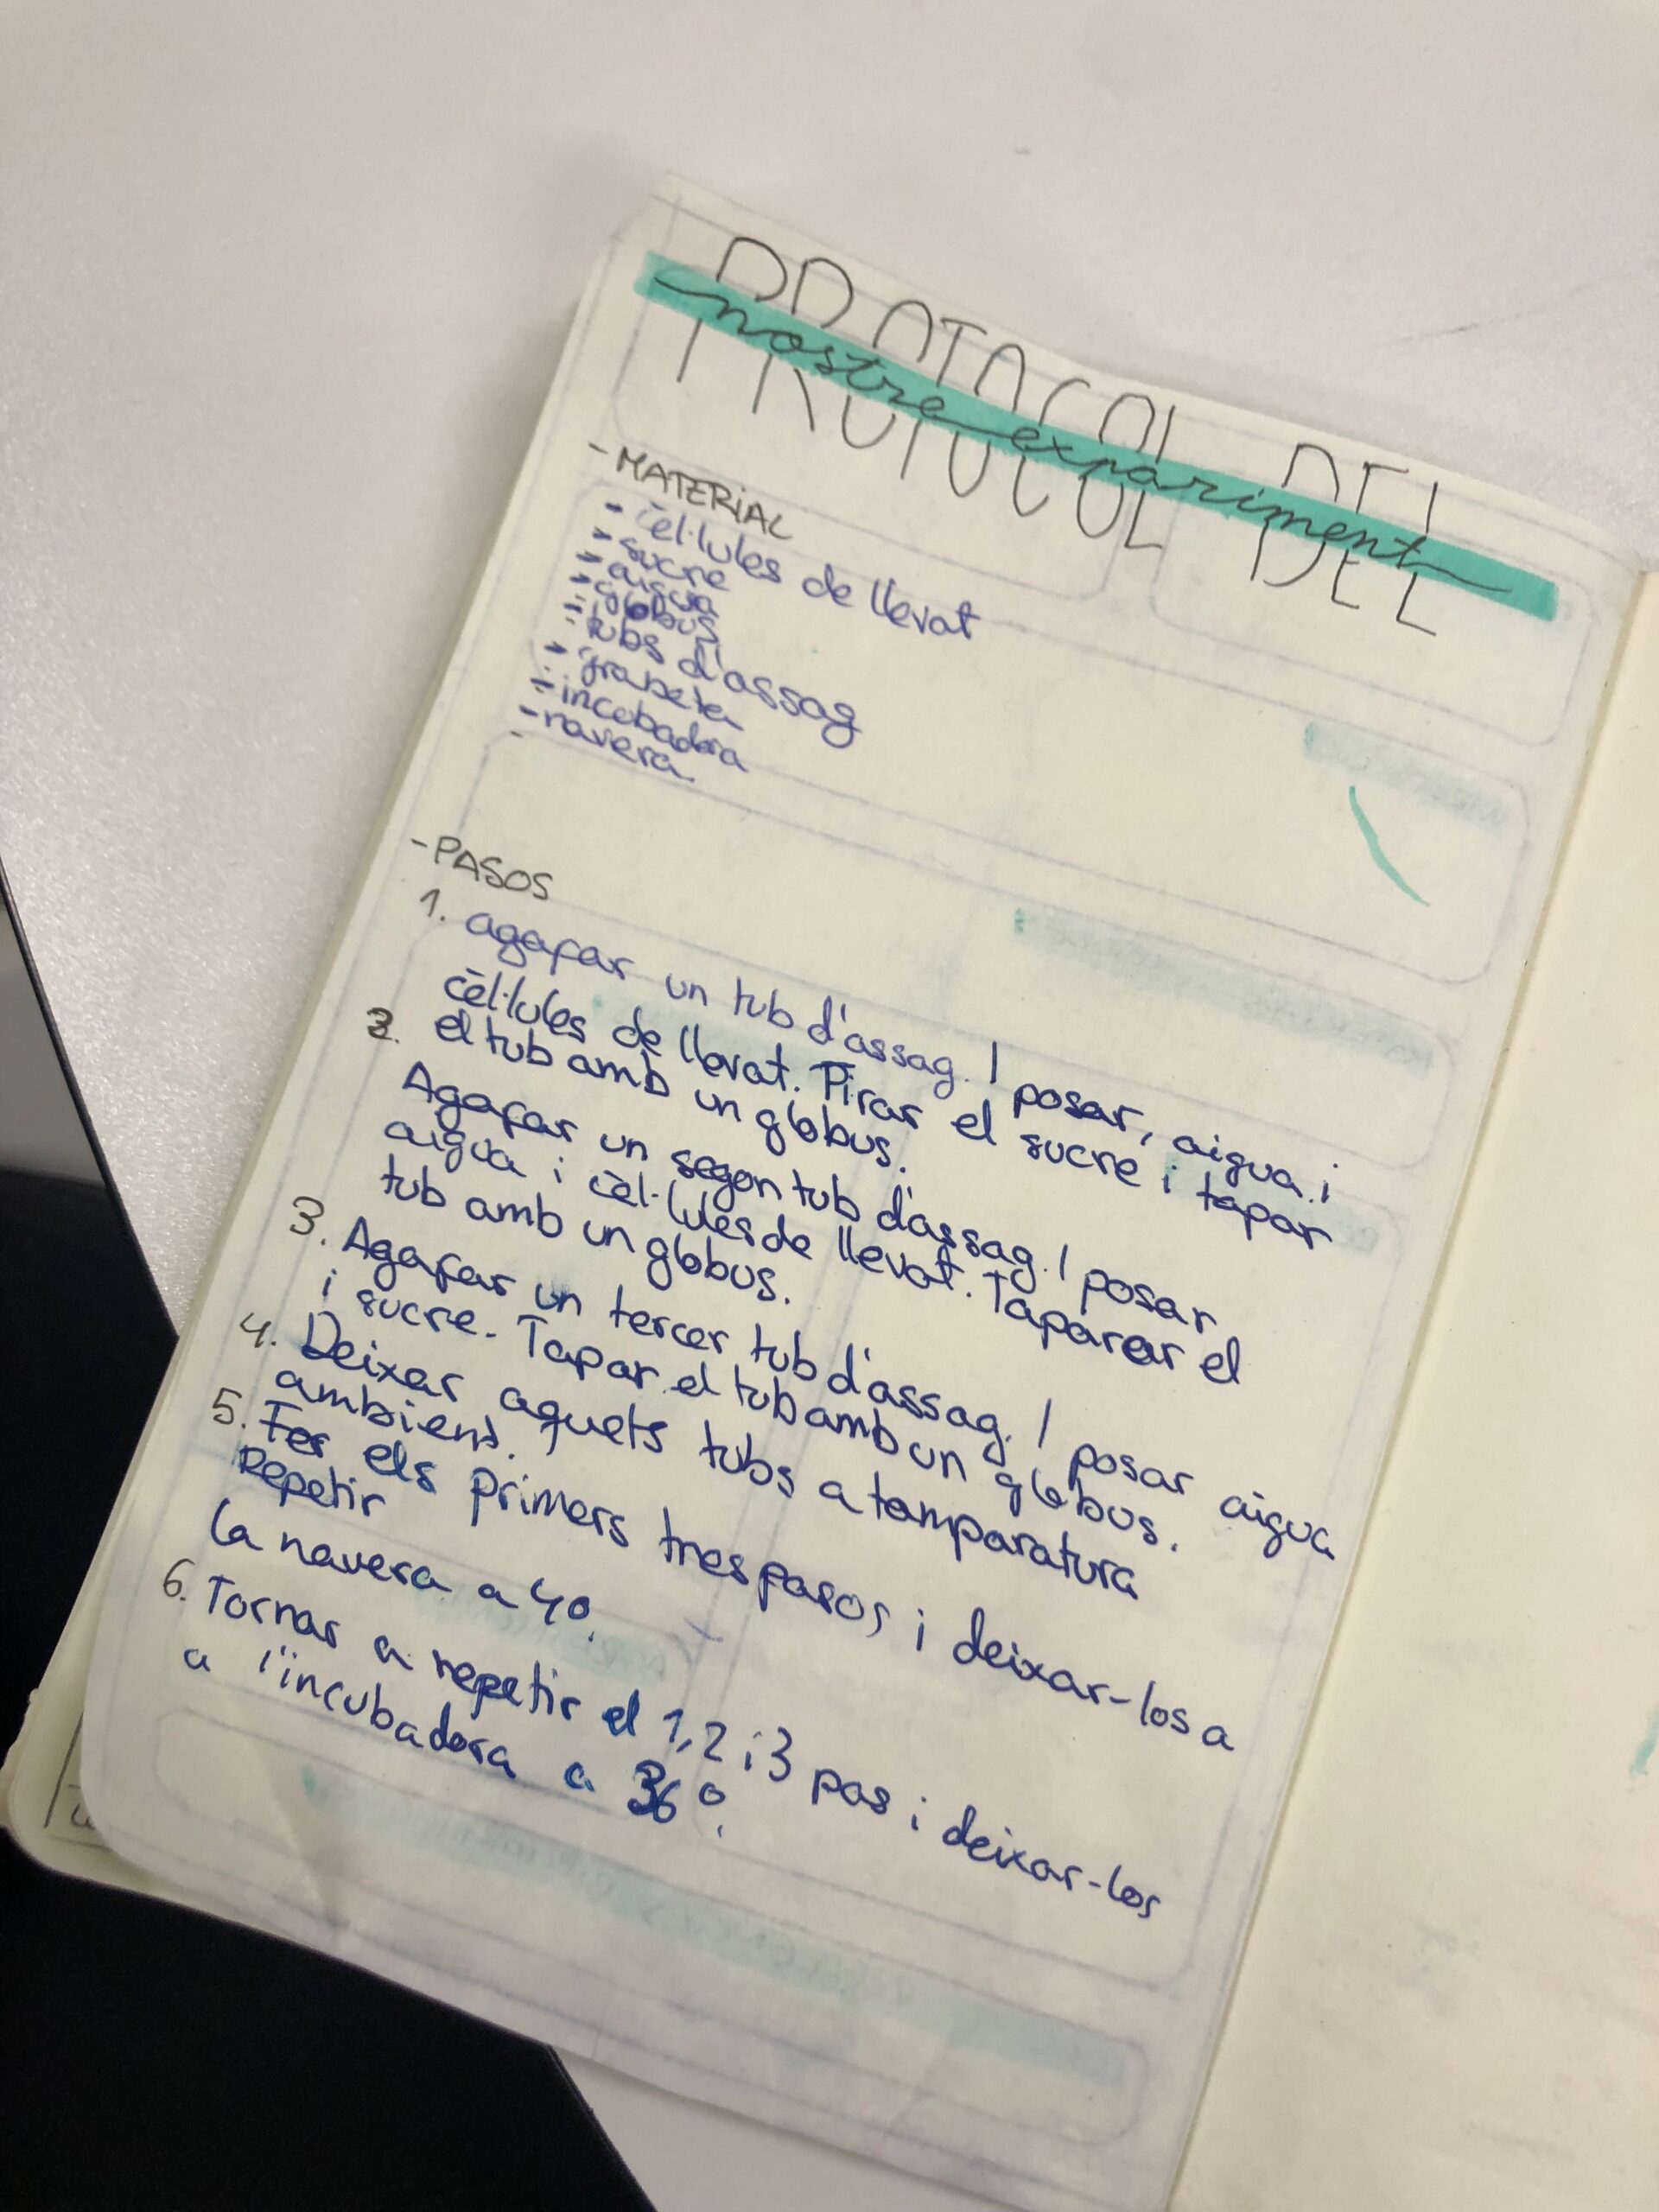 PROTOCOL DEL
nostre expariment
- MATERIAL
- cèl·lules de llevat
- sucre
- aigua
- globus
- tubs d'assag
- grabeta
- incubadora
- navera.
- PASOS
1. agafar un tub d'assag. I posar, aigua i
cèl·lules de llevat. Tirar el sucre i tapar
el tub amb un globus.
2. Agafar un segon tub d'assag. I posar
aigua i cèl·lules de llevat. Taparar el
tub amb un globus.
3. Agafar un tercer tub d'assag. I posar aigua
i sucre. Tapar el tub amb un globus.
4. Deixar aquets tubs a tamparatura
ambient.
5. Fer els primers tres pasos i deixar-los a
Repetir
la navera a 4º.
6. Tornar a repetir el 1, 2 i 3 pas i deixar-los
a l'incubadora a 36º.